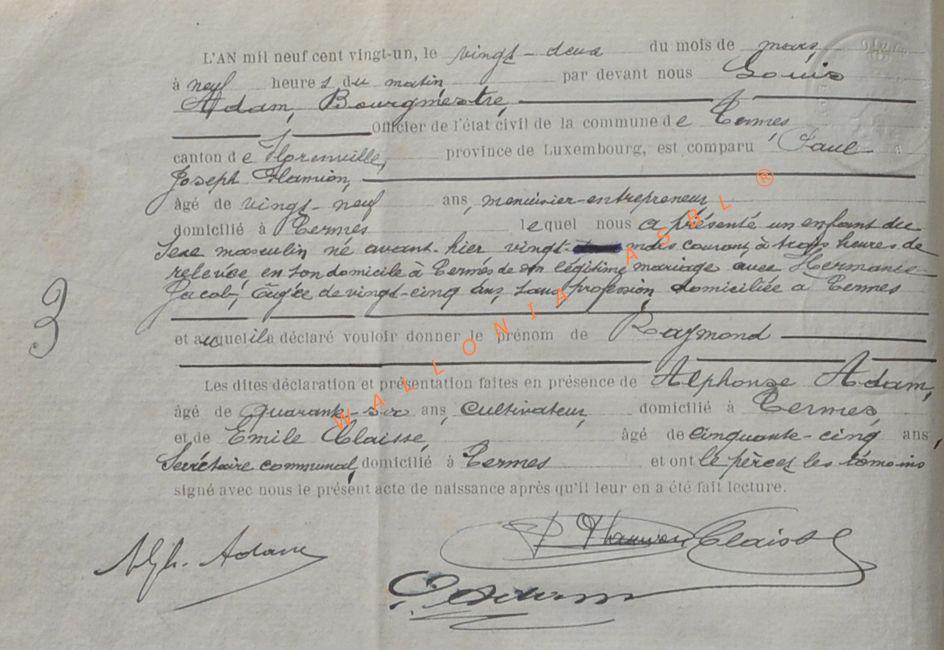 L'AN mil neuf cent vingt-un, le vingt-deux du mois de mars
à neuf heures du matin par devant nous Louis
Adam, Bourgmestre,
Officier de l'état civil de la commune de Termes
canton de Florenville, province de Luxembourg, est comparu Paul
Joseph Hamion,
âgé de vingt-neuf ans, menuisier-entrepreneur
domicilié à Termes lequel nous a présenté un enfant du
sexe masculin né avant-hier vingt mars courant, à trois heures de
relevée en son domicile à Termes de son légitime mariage avec Hermanie
Jacob, âgée de vingt-cinq ans, sans profession domiciliée à Termes
et auquel ila déclaré vouloir donner le prénom de Raymond
Les dites déclaration et présentation faites en présence de Alphonse Adam,
âgé de quarante-six ans, cultivateur, domicilié à Termes
et de Emile Claisse, âgé de cinquante-cinq ans,
Secrétaire communal, domicilié à Termes et ont le père et les témoins
signé avec nous le présent acte de naissance après qu'il leur en a été fait lecture.
3
Alph. Adam P Hamion Claisse
Adam
WALLONIA ASBL ®